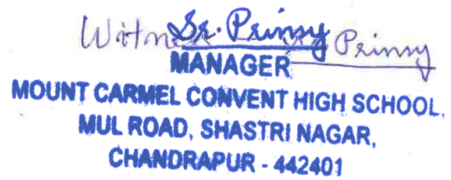 Witness Sr. Prinsy Prinsy
MANAGER
MOUNT CARMEL CONVENT HIGH SCHOOL,
MUL ROAD, SHASTRI NAGAR,
CHANDRAPUR - 442401